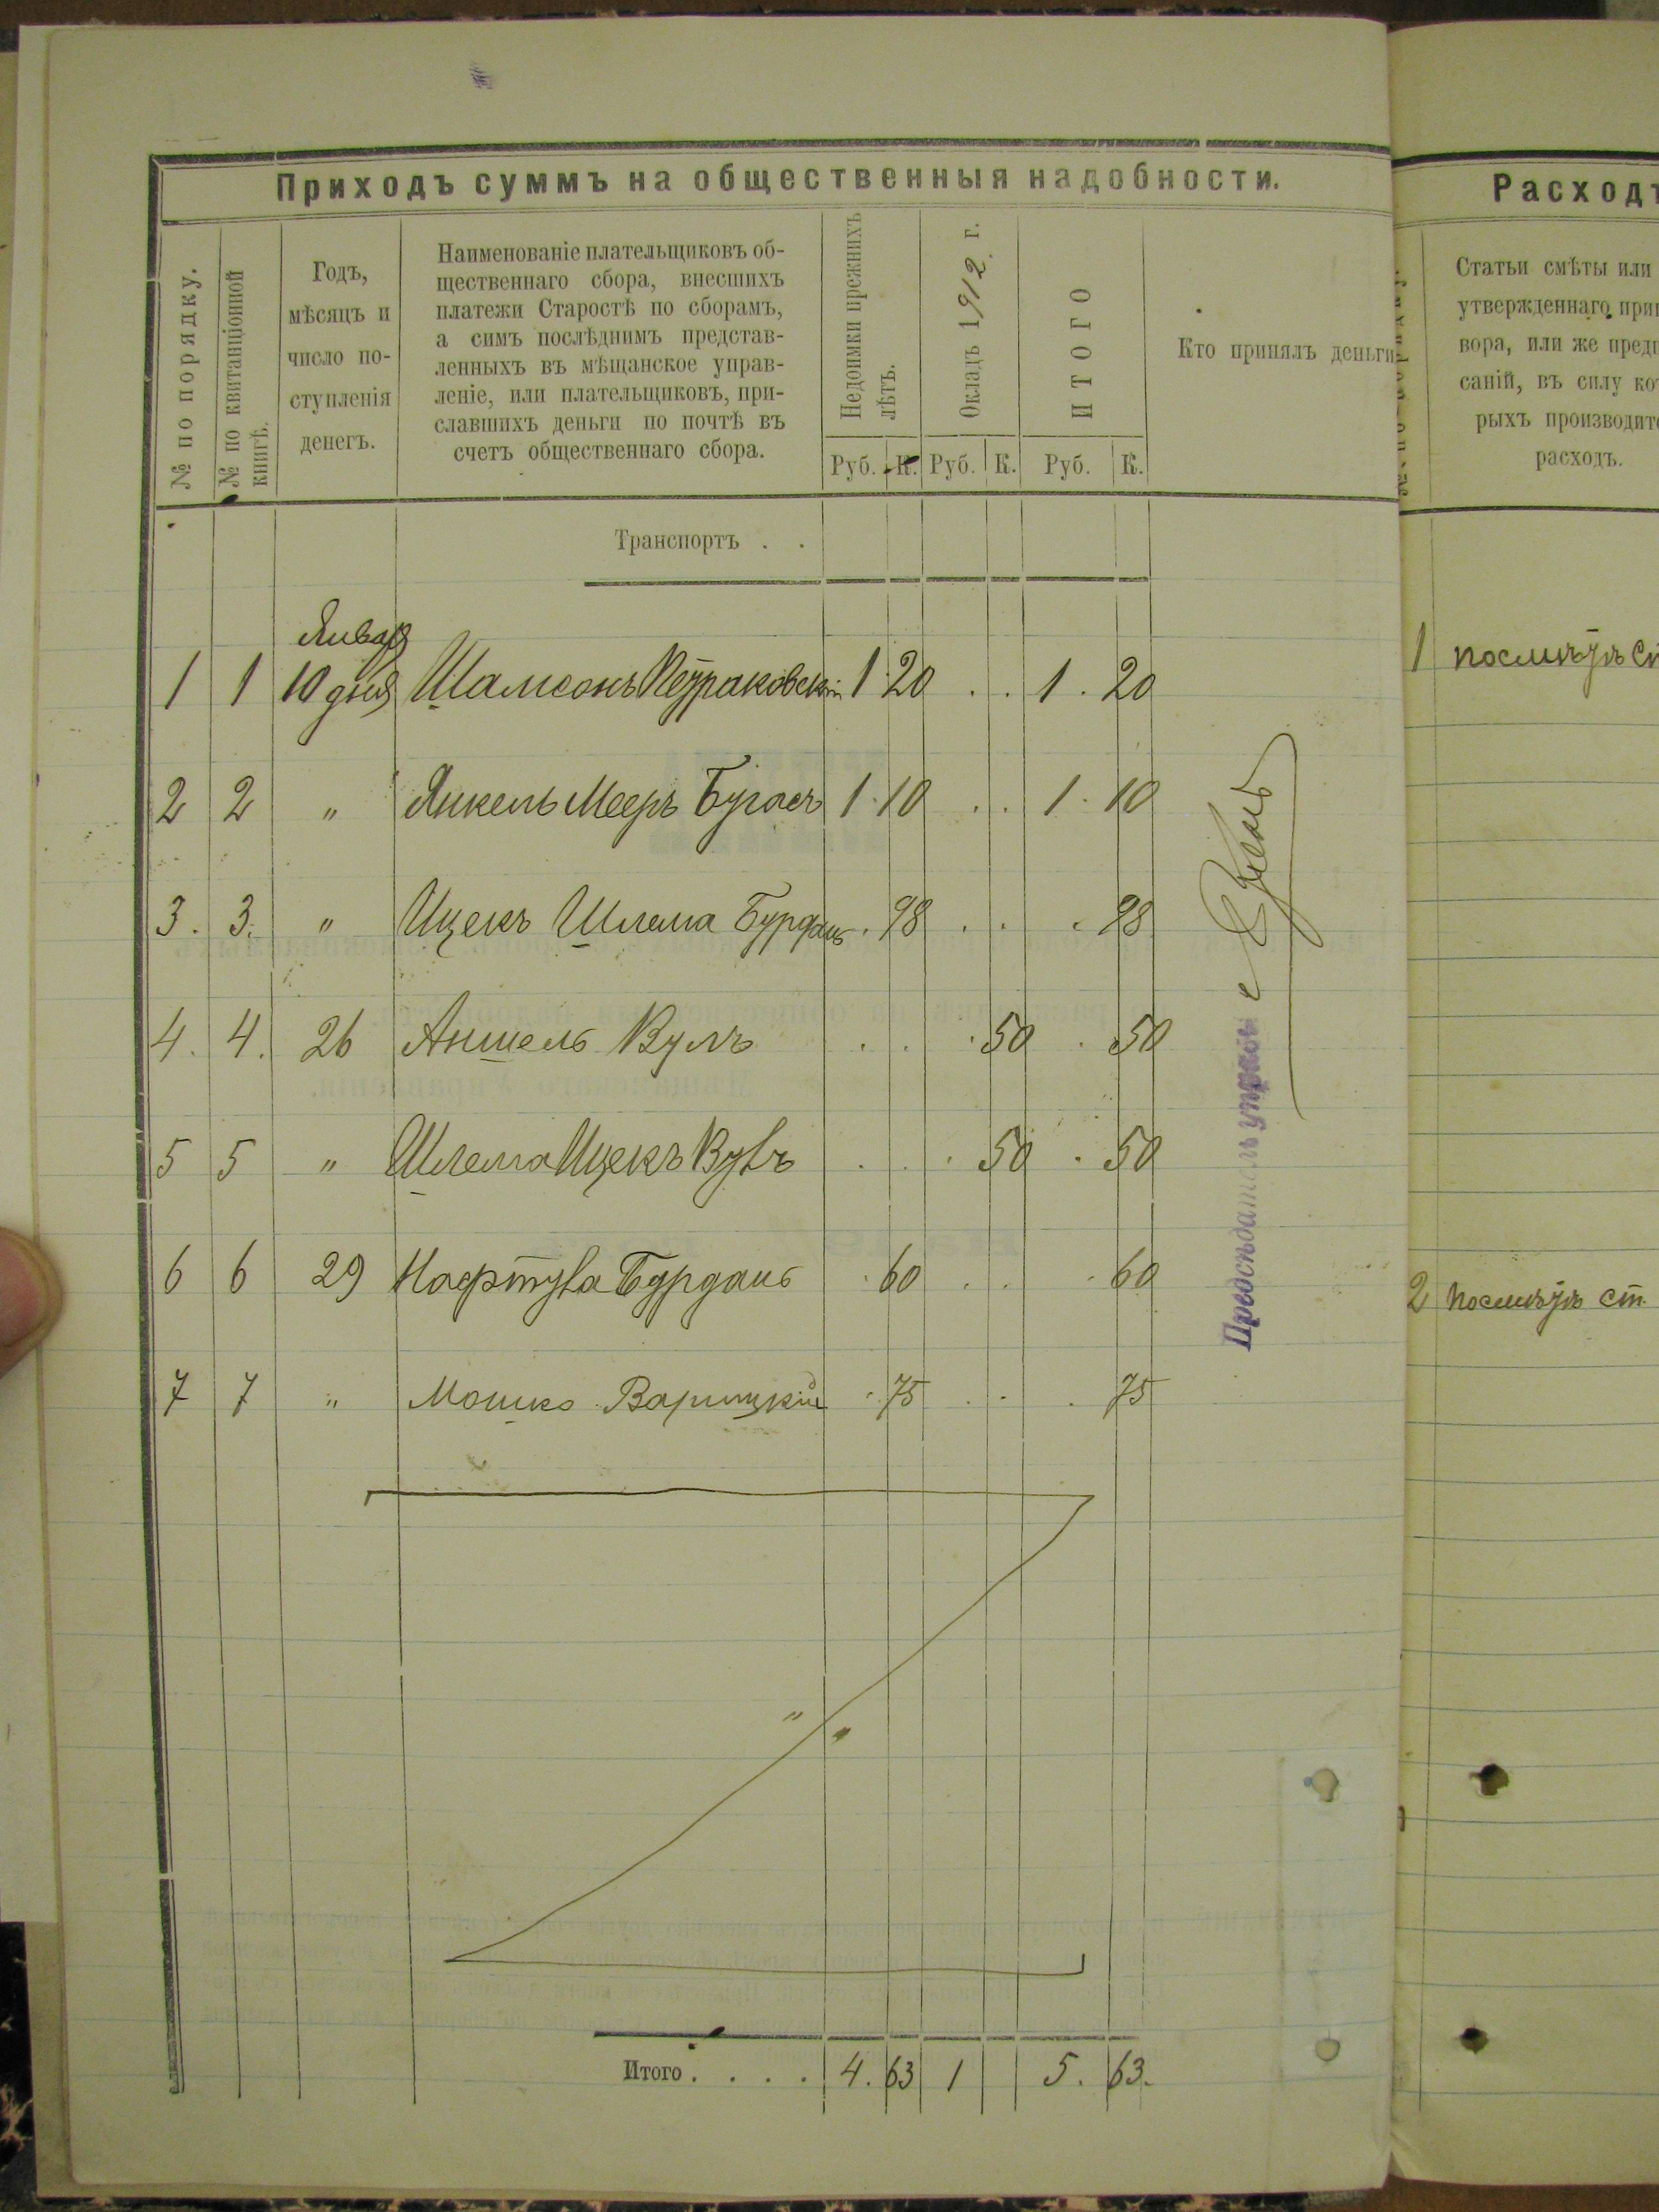 Приходъ суммъ на общественныя надобности.
№ по порядку.
№ по квитанціонной
книгѣ.
Годъ,
мѣсяцъ и
число по-
ступленія
денегъ.
Наименованіе плательщиковъ об-
щественнаго сбора, внесшихъ
платежи Старостѣ по сборамъ,
а симъ послѣднимъ представ-
ленныхъ въ мѣщанское управ-
леніе, или плательщиковъ, при-
славшихъ деньги по почтѣ въ
счетъ общественнаго сбора.
Недоимки прежнихъ
лѣтъ.
Окладъ 1912. г.
ИТОГО
Руб. К. Руб. К. Руб. К.
Кто принялъ деньги
Транспортъ . .
Января
1 1 10 дня Шамсонъ 1 20 . . 1 . 20
2 2 " Янкель Мееръ Бугаеч 1 . 10 . . 1 . 10
3. 3. " Ицекъ Шлема Бурданъ . 98 . . . 98
4. 4. 26 Аншель Вулъ . . . 50 . 50
5 5 " Шлема Ицекъ Вувъ . . . 50 . 50
6 6 29 Нафтула Бурданъ . 60 . . . 60
7 7 " Мошко Варицкій . 75 . . . 75
Предсѣдатель управы
" "
Итого . . . . 4. 63 1 5. 63.
Расходъ
Статьи смѣты или
утвержденнаго при
вора, или же пред
саній, въ силу ко
рыхъ производит
расходъ.
1
2 ст.